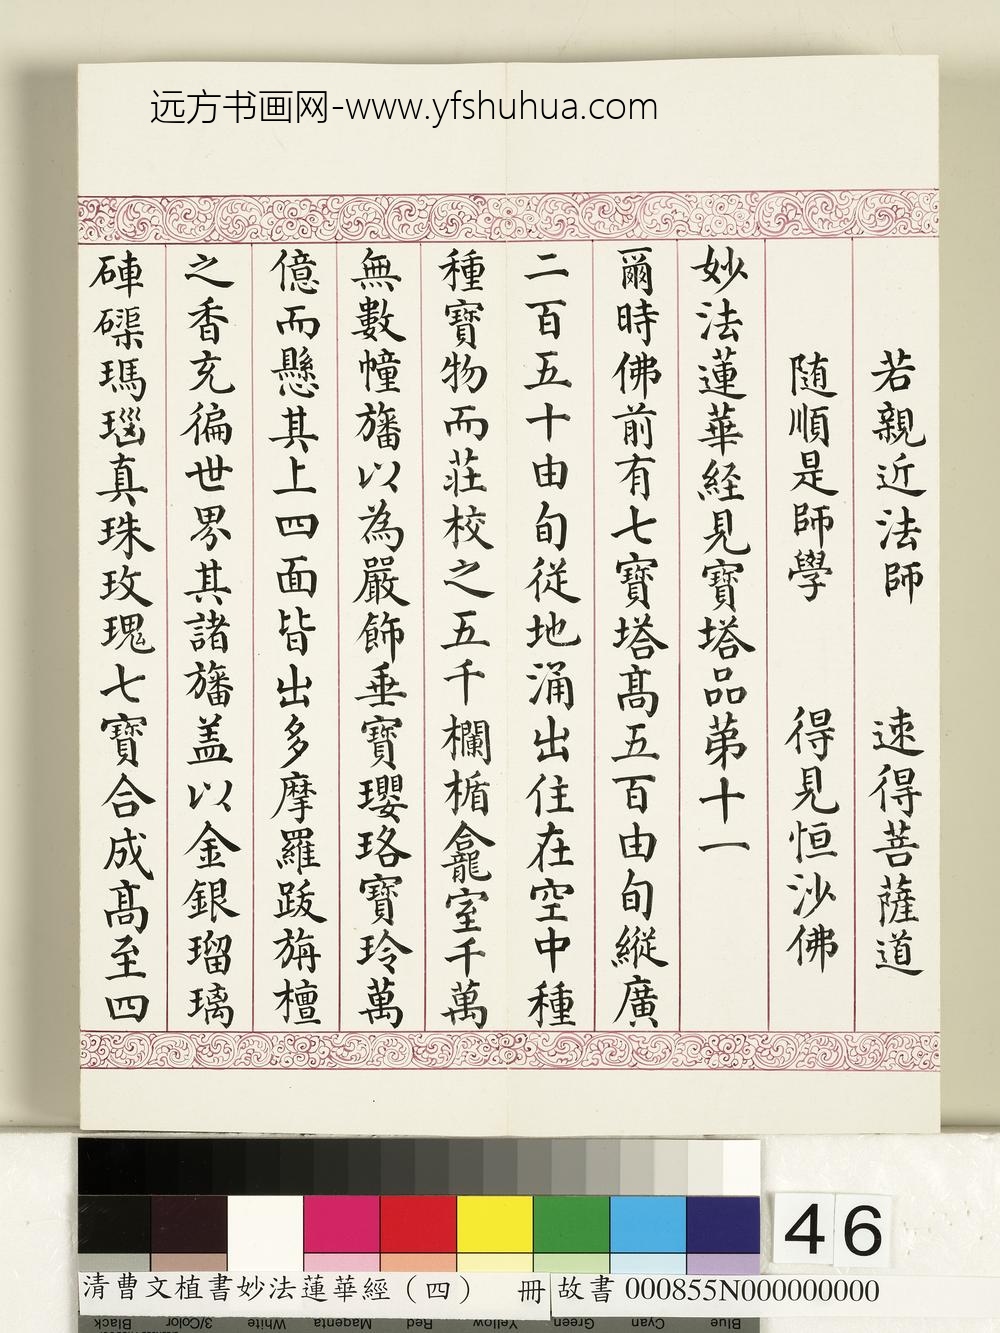 远方书画网-www.yfshuhua.com
若親近法師 速得菩薩道
随順是師學 得見恒沙佛
妙法蓮華経見寶塔品苐十一
爾時佛前有七寶塔髙五百由旬縱廣
二百五十由旬從地涌出住在空中種
種寶物而莊校之五千欄楯龕室千萬
無數幢旛以為嚴飾垂寶瓔珞寶玲萬
億而懸其上四面皆出多摩羅跋旃檀
之香充徧世界其諸旛盖以金銀瑠璃
硨磲瑪瑙真珠玫瑰七寶合成髙至四
46
清曹文植書妙法蓮華經（四） 冊
故書 000855N000000000
Black 3/Color White Magenta Red Yellow Green Cyan Blue